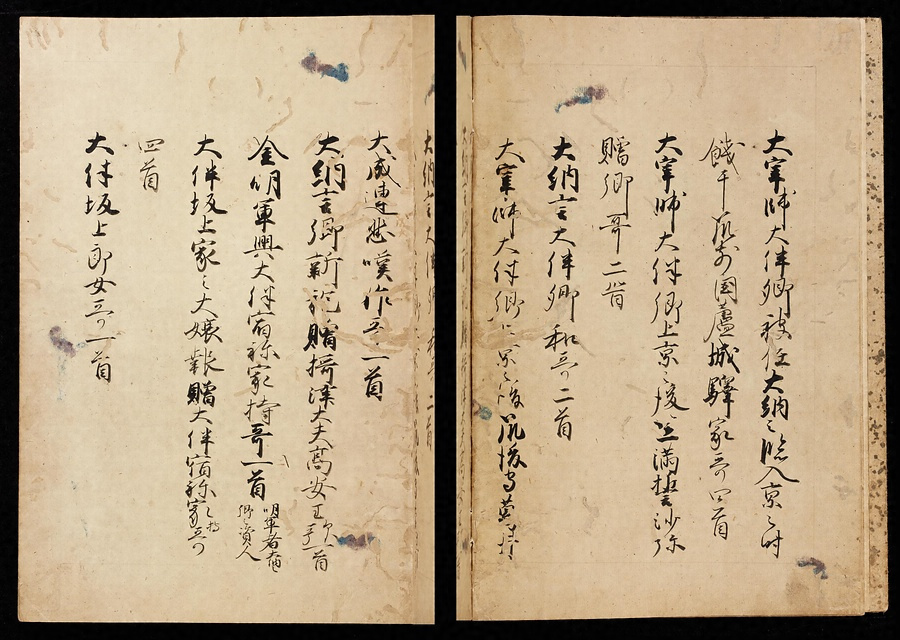 大宰帥大伴卿被任大納言臨入京之時
餞于筑前国蘆城驛家哥四首
大宰帥大伴卿上京之後満誓沙弥
贈卿哥二首
大納言大伴卿和哥二首
大宰帥大伴卿上京之後筑後守葛井
大成連悲嘆作哥一首
大納言卿新袍贈摂津大夫高安王歌一首
金明軍與大伴宿祢家持哥一首
明軍者大納言
卿之資人
大伴坂上家之大嬢報贈大伴宿祢家持哥
四首
大伴坂上郎女哥一首